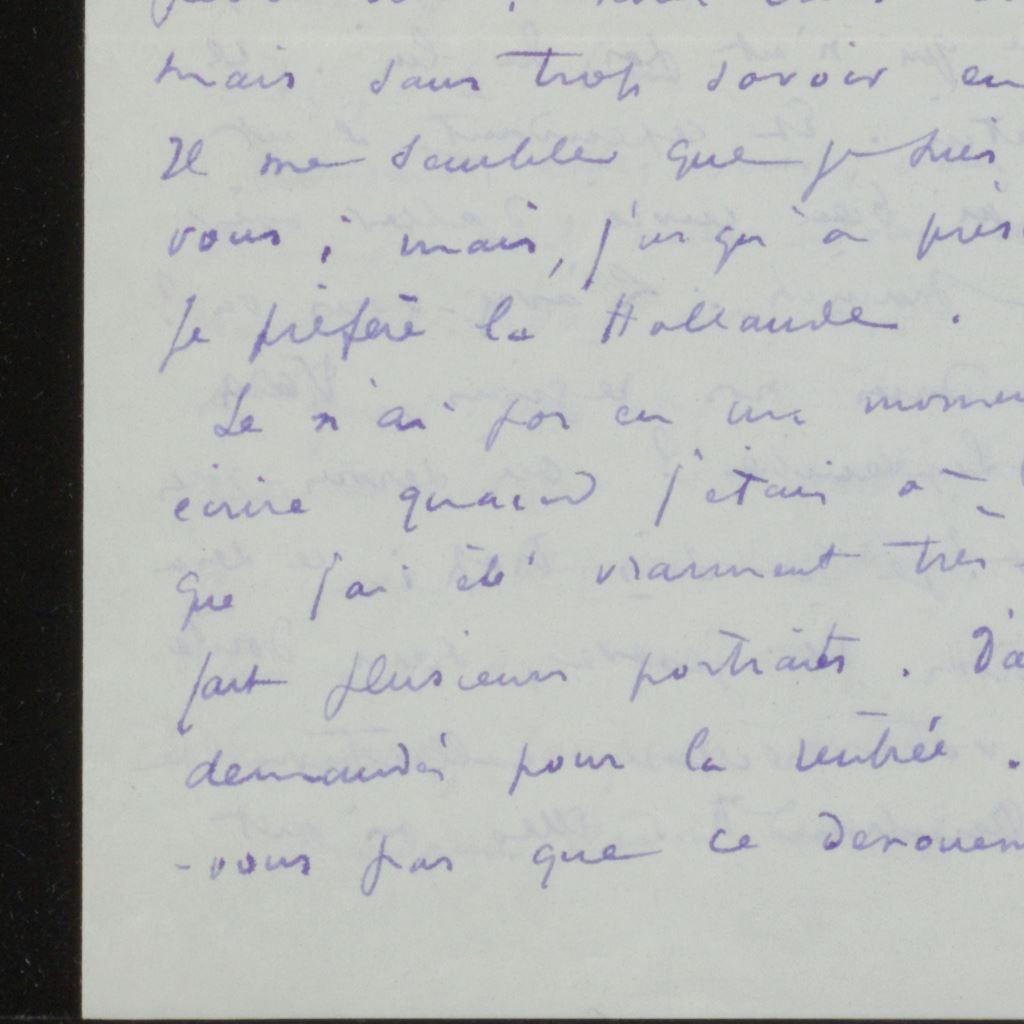 mais sans trop savoir en
Il me semble que je suis
vous ; mais, jusqu'à prés
je préfère la Hollande .
Je n'ai pas eu un momen
écrire quand j'étais à
que j'ai été vraiment très
fait plusieurs portraits . D'a
demandés pour la rentrée .
-vous pas que ce dénouem